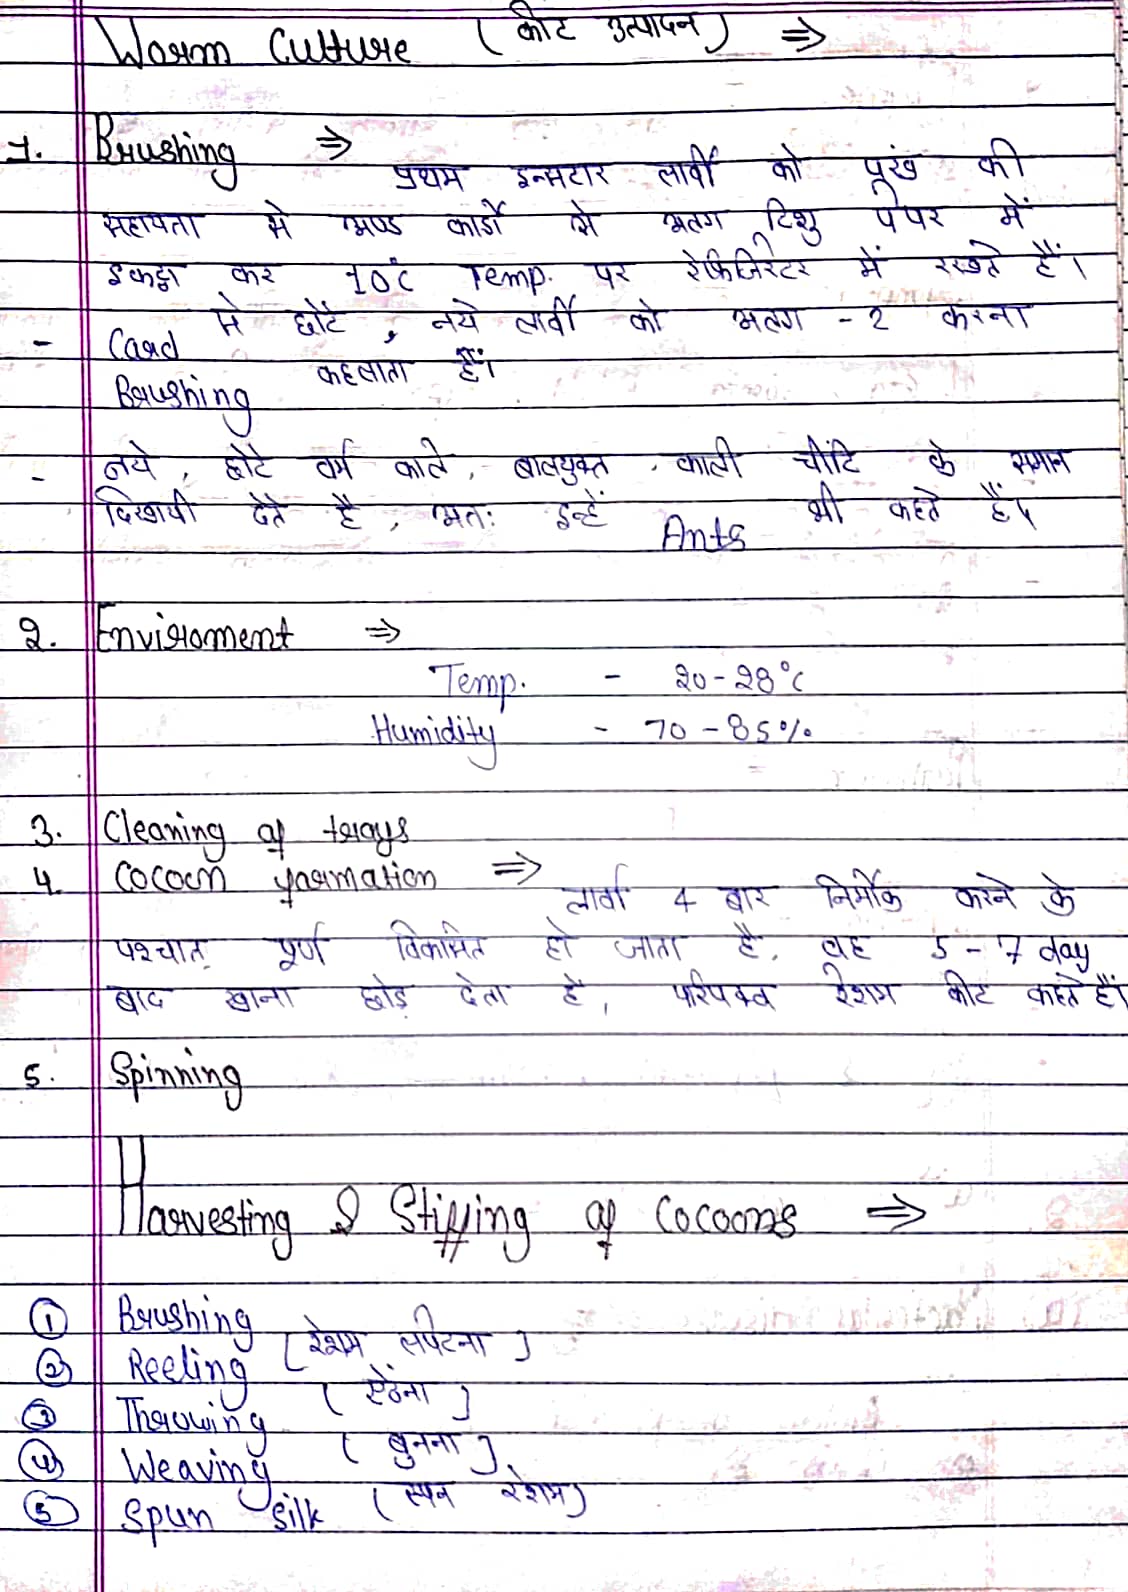 Worm Culture (कीट उत्पादन) ⇒
1. Brushing ⇒
प्रथम इन्सटार लार्वा को पूरंख की
सहायता से अण्ड कार्डो से अलग टिशु पेपर में
इकट्ठा कर 10°C Temp. पर रेफ्रिजिरेटर में रखते हैं।
- Card से छोटे, नये लार्वा को अलग-2 करना
Brushing कहलाता हैं।
- नये, छोटे वर्म काले, बालयुक्त, काली चींटि के समान
दिखायी देते है, अतः इन्हें Ants भी कहते हैं।
2. Enviroment ⇒
Temp. - 20-28°C
Humidity - 70-85%
3. Cleaning of trays
4. Cocoon formation ⇒ लार्वा 4 बार निर्मोक करने के
पश्चात् पूर्ण विकसित हो जाता है, वह 5-7 day
बाद खाना छोड़ देता है, परिपक्व रेशम कीट कहते हैं।
5. Spinning
Harvesting & Stiffing of Cocoons ⇒
① Brushing
② Reeling (रेशम लपेटना)
③ Throwing (ऐठेंना)
④ Weaving (बुनना)
⑤ Spun silk (स्पन रेशम)